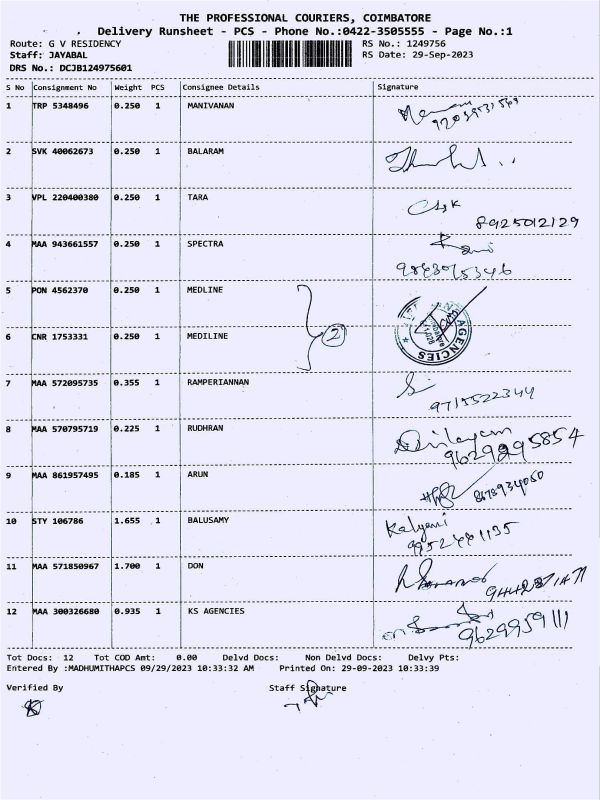 THE PROFESSIONAL COURIERS, COIMBATORE
Delivery Runsheet - PCS - Phone No.:0422-3505555 - Page No.:1
Route: G V RESIDENCY RS No.: 1249756
Staff: JAYABAL RS Date: 29-Sep-2023
DRS No.: DCJB124975601
S No Consignment No Weight PCS Consignee Details Signature
1 TRP 5348496 0.250 1 MANIVANAN
2 SVK 40062673 0.250 1 BALARAM
3 VPL 220400380 0.250 1 TARA
8925012129
4 MAA 943661557 0.250 1 SPECTRA
9843015346
5 PON 4562370 0.250 1 MEDLINE
2
6 CNR 1753331 0.250 1 MEDILINE
AGENCIES
7 MAA 572095735 0.355 1 RAMPERIANNAN
9715522344
8 MAA 570795719 0.225 1 RUDHRAN
9629295854
9 MAA 861957495 0.185 1 ARUN
10 STY 106786 1.655 1 BALUSAMY Kalyani
9952481135
11 MAA 571850967 1.700 1 DON
12 MAA 300326680 0.935 1 KS AGENCIES
9629959111
Tot Docs: 12 Tot COD Amt: 0.00 Delvd Docs: Non Delvd Docs: Delvy Pts:
Entered By :MADHUMITHAPCS 09/29/2023 10:33:32 AM Printed On: 29-09-2023 10:33:39
Verified By Staff Signature